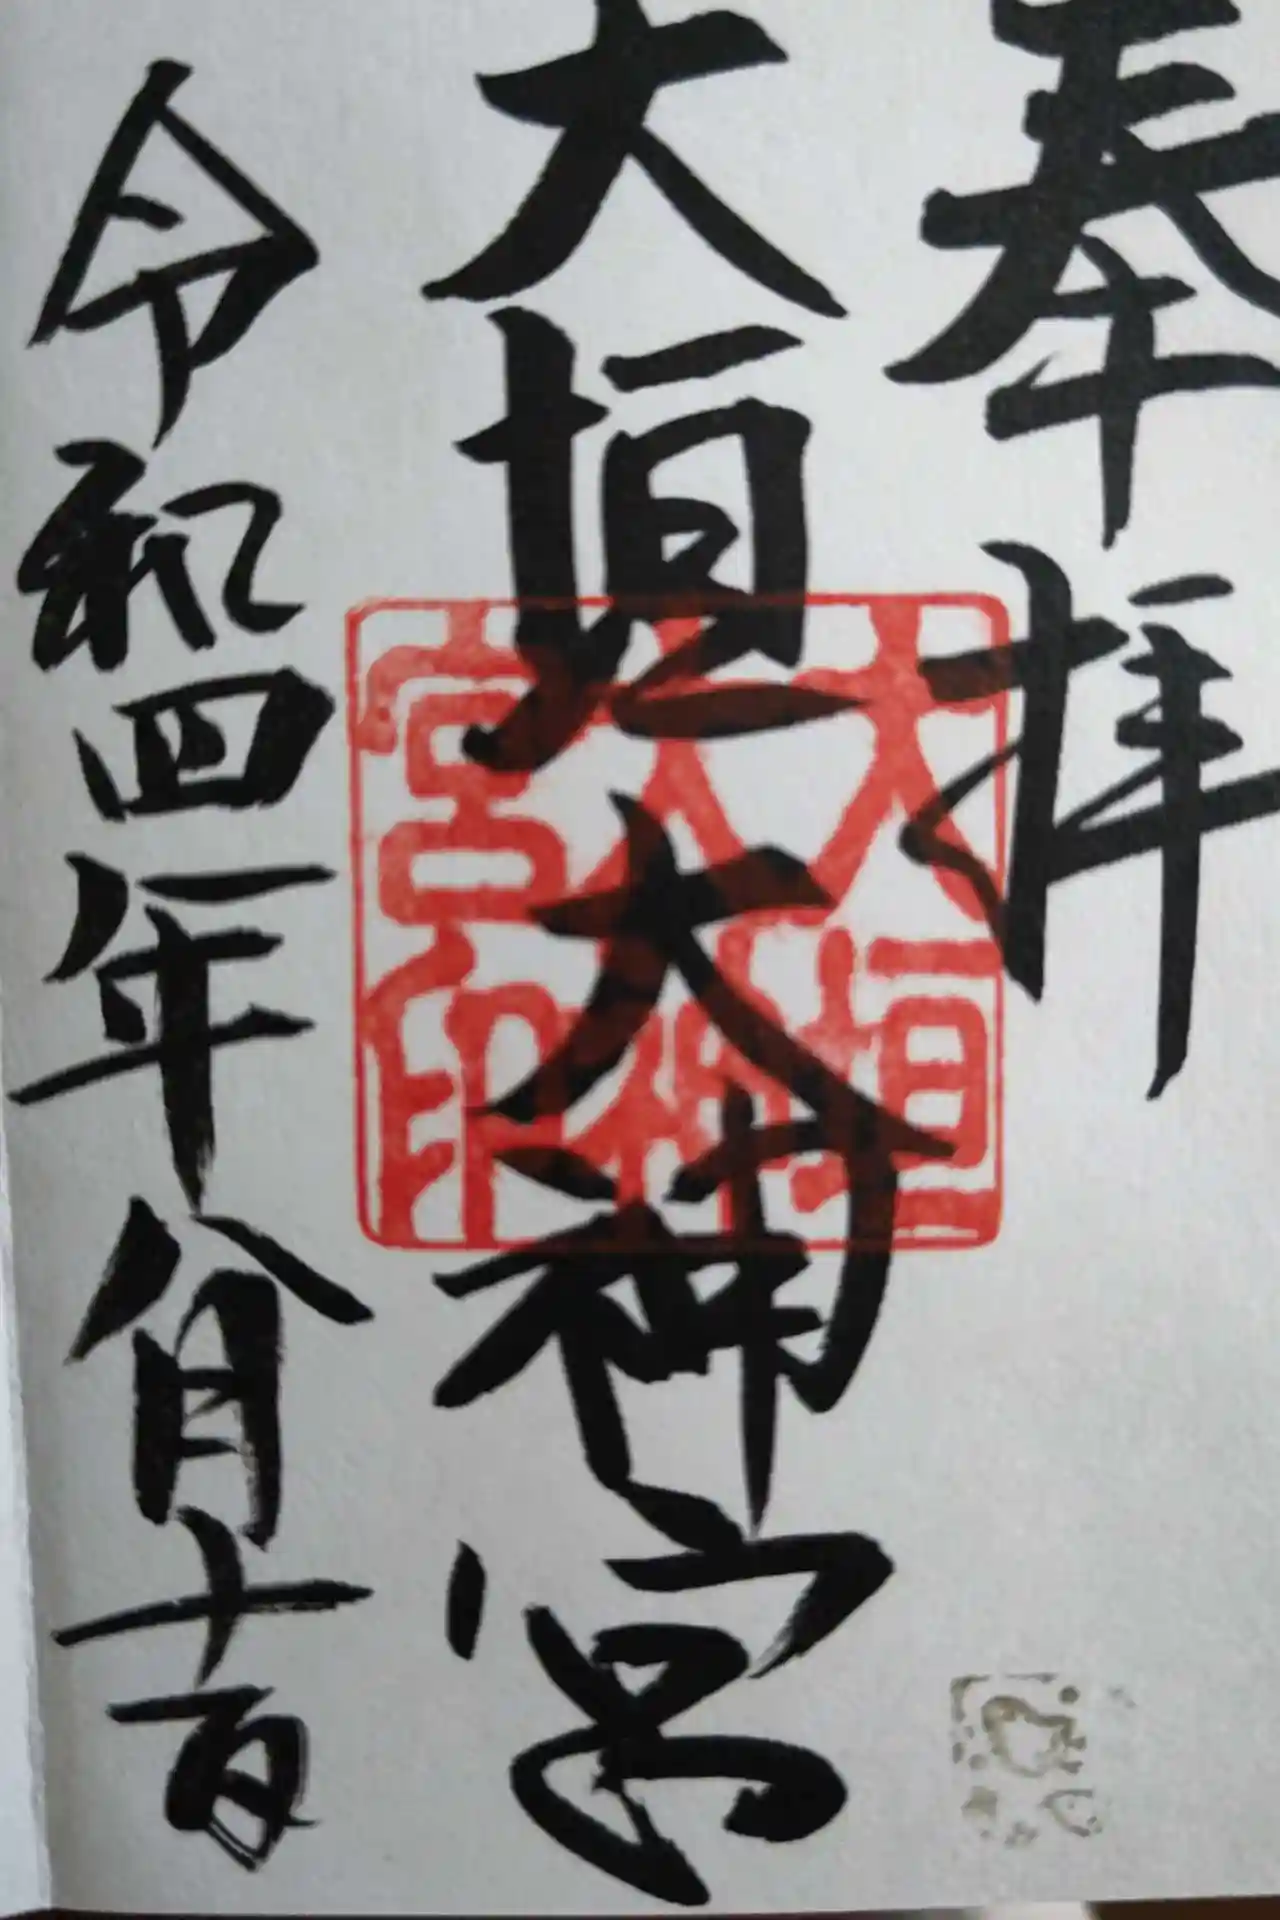 奉拝
大垣大神宮
令和四年八月十一日
大垣
大神
宮印